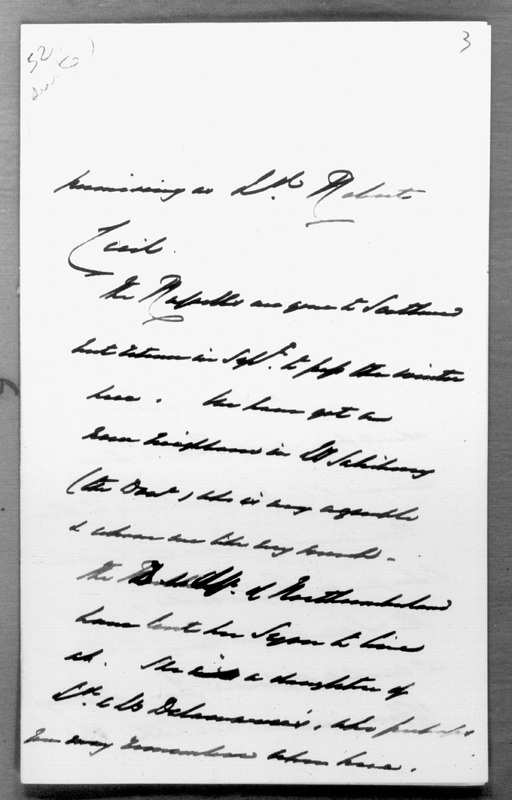 3
promising as Ld. Robert
Cecil.
The Ratcliffes are gone to Scotland
but return in Sept. to pass the winter
here. We have got a
dear neighbour in Ly Salisbury
(the Dowr.) who is very agreeable
& whom we like very much –
The of Northumberland
have lent her Syon to live
at. She is a daughter of
Ld. & Ly Delawarr's, who perhaps
you may remember when here.